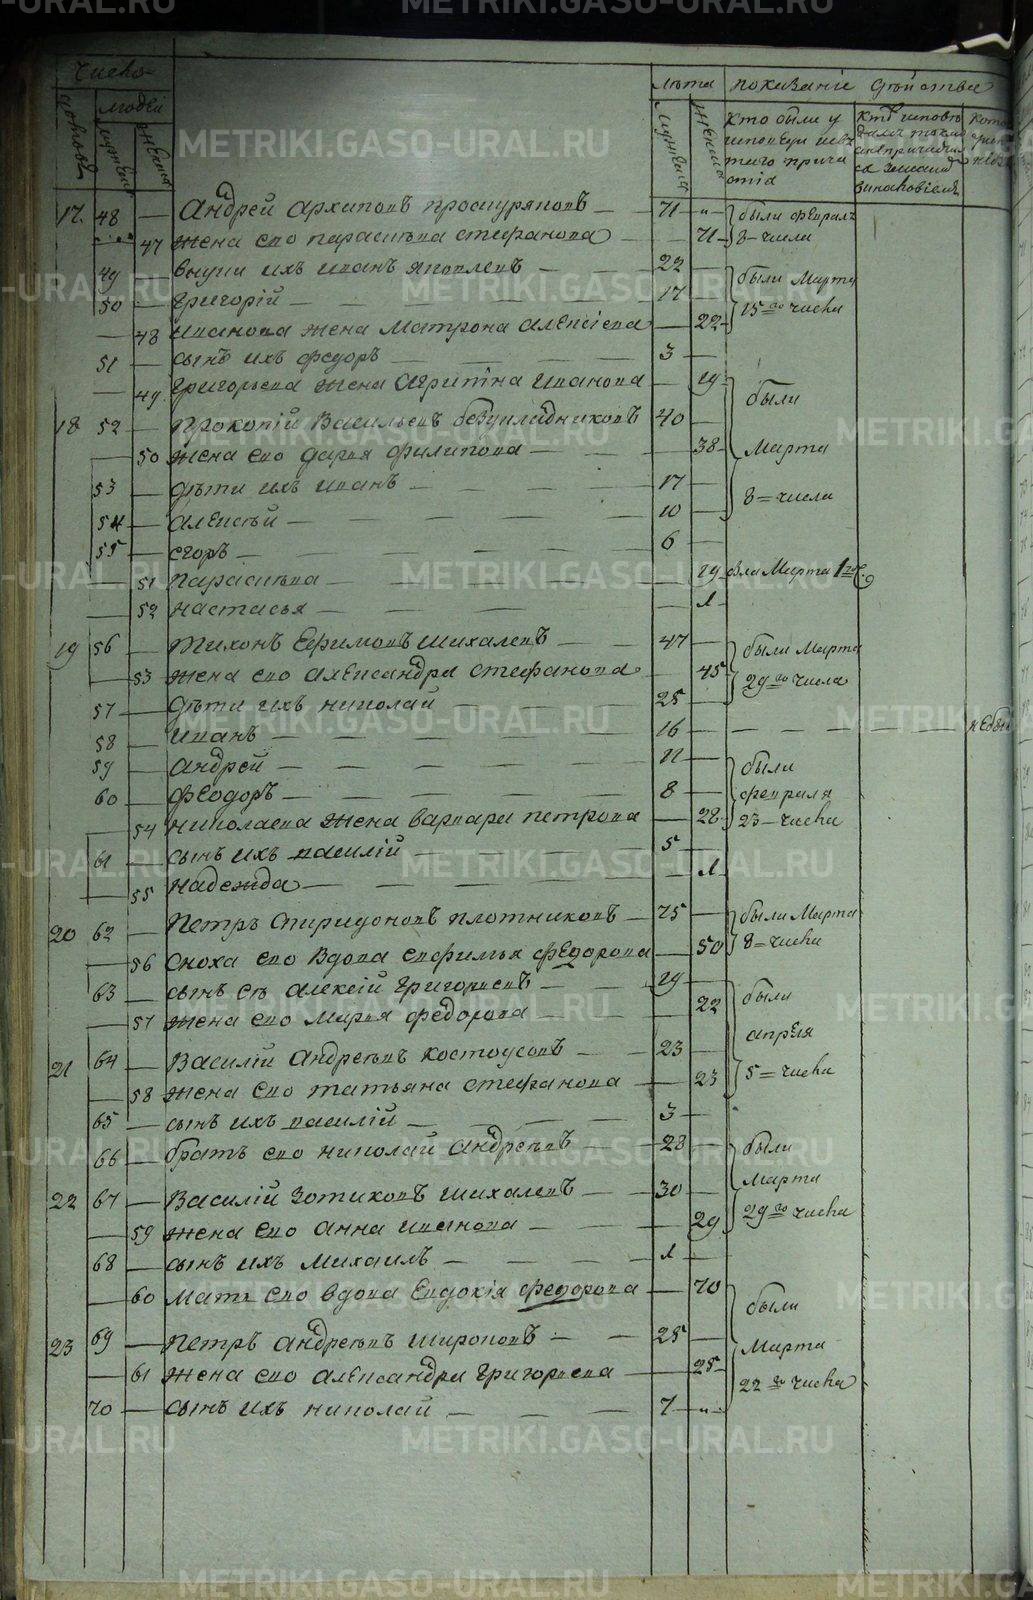 METRIKI.GASO-URAL.RU
Число
Лѣта показаніе дѣйства
людей
домовъ мужеска женска мужеска женска
Кто были у исповѣди и святаго причастія
17. 48 — Андрей Архиповъ Проскуряковъ — 71 — были Февраля
47 жена его Параскѣва Стефанова — 71 8 числа
49 — внуки ихъ Иванъ Яковлевъ — 22 были Марта
50 — Григорій — 17 15го числа
— 48 Иванова жена Матрона Алексіева — 22
51 — сынъ ихъ Федоръ — 3
— 49 Григорьева жена Агрипина Иванова — 19 были
18 52 — Прокопій Васильевъ 40
— 50 жена его Дарья Филипова — 38 Марта
53 — дѣти ихъ Иванъ — 17
54 — Алексѣй — 10 8 числа
55 — Егоръ — 6
— 51 Параскѣва — 19 Марта
— 52 Настасья — 1
19 56 — Тихонъ Ефимовъ Шихалевъ — 47 были Марта
— 53 жена его Александра Стефанова — 45 29го числа
57 — дѣти ихъ Николай — 25
58 — Иванъ — 16 — небы
59 — Андрей — 11 были
60 — Феодоръ — 8 Февраля
— 54 Николаева жена Варвара Петрова — 28 23 числа
61 — сынъ ихъ Василій — 5
— 55 Надежда — 1
20 62 — Петръ Спиридоновъ Плотниковъ — 75 — были Марта
— 56 сноха его вдова Евфимья Федорова — 50 8 числа
63 — сынъ ея Алексій Григорьевъ — 19 были
— 57 жена его Марья Федорова — 22 апреля
21 64 — Василій Андреевъ Костоусовъ — 23
— 58 жена его Татьяна Стефанова — 23 5 числа
65 — сынъ ихъ Василій — 3
66 — братъ его Николай Андреевъ — 28 были
22 67 — Василій Зотиковъ Шихалевъ — 30 Марта
— 59 жена его Анна Иванова — 29 29го числа
68 — сынъ ихъ Михаилъ — 1
— 60 мать его вдова Евдокія Федорова — 70 были
23 69 — Петръ Андреевъ Широковъ — 25 Марта
— 61 жена его Александра Григорьева — 25 22го числа
70 — сынъ ихъ Николай — 7